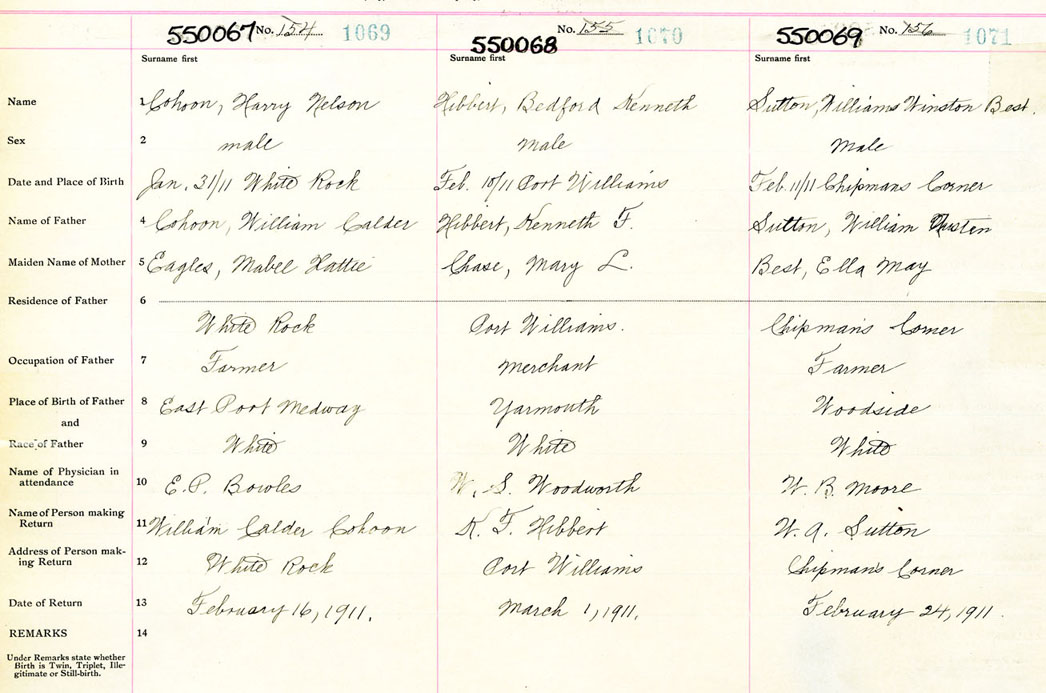 550067 No. 154 1069 550068 No. 155 1070 550069 No. 156 1071
Surname first Surname first Surname first
Name 1 Cohoon, Harry Nelson Hibbert, Bedford Kenneth Sutton, Williams Winston Best.
Sex 2 male male Male
Date and Place of Birth 3 Jan. 31/11 White Rock Feb. 10/11 Port Williams Feb. 11/11 Chipmans Corner
Name of Father 4 Cohoon, William Calder Hibbert, Kenneth F. Sutton, William
Maiden Name of Mother 5 Eagles, Mabel Hattie Chase, Mary L. Best, Ella May
Residence of Father 6
White Rock Port Williams. Chipman's Corner
Occupation of Father 7 Farmer Merchant Farmer
Place of Birth of Father 8 East Port Medway Yarmouth Woodside
and
Race of Father 9 White White White
Name of Physician in
attendance 10 E. P. Bowles W. S. Woodworth W. B. Moore
Name of Person making
Return 11 William Calder Cohoon K. F. Hibbert W. A. Sutton
Address of Person mak-
ing Return 12 White Rock Port Williams Chipman's Corner
Date of Return 13 February 16, 1911. March 1, 1911. February 24, 1911.
REMARKS 14
Under Remarks state whether
Birth is Twin, Triplet, Ille-
gitimate or Still-birth.